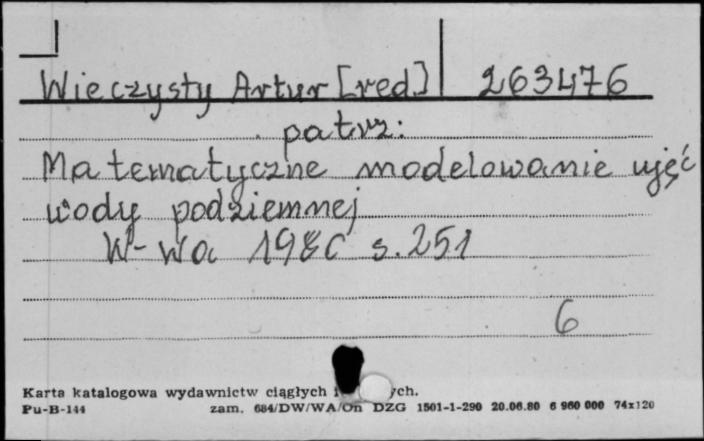 Wieczysty Artur [red] 263476
patrz:
Matematyczne modelowanie ujęć
wody podziemnej
W-wa 1980 s. 251
6
Karta katalogowa wydawnictw ciągłych i ych.
Pu-B-144 zam. 684/DW/WA/On DZG 1501-1-290 20.06.80 6 960 000 74x120